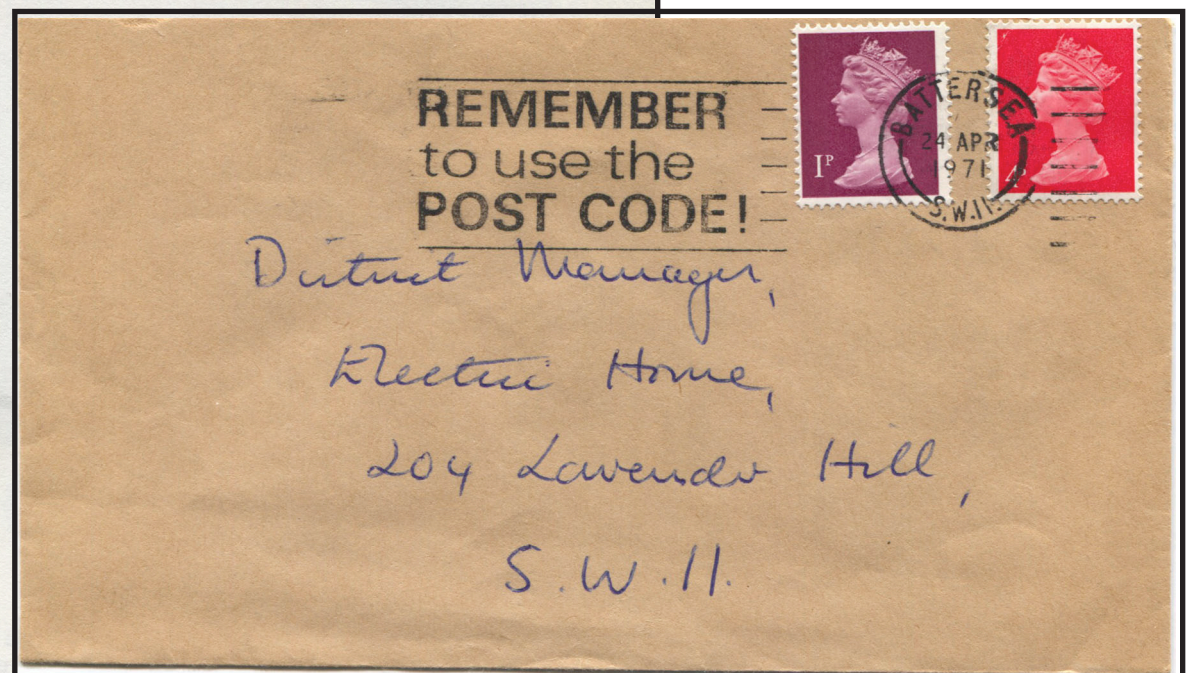 REMEMBER
to use the
POST CODE!
1P
BATTERSEA
24 APR
1971
S.W.11.
District Manager,
Electric Home,
204 Lavender Hill,
S.W.11.